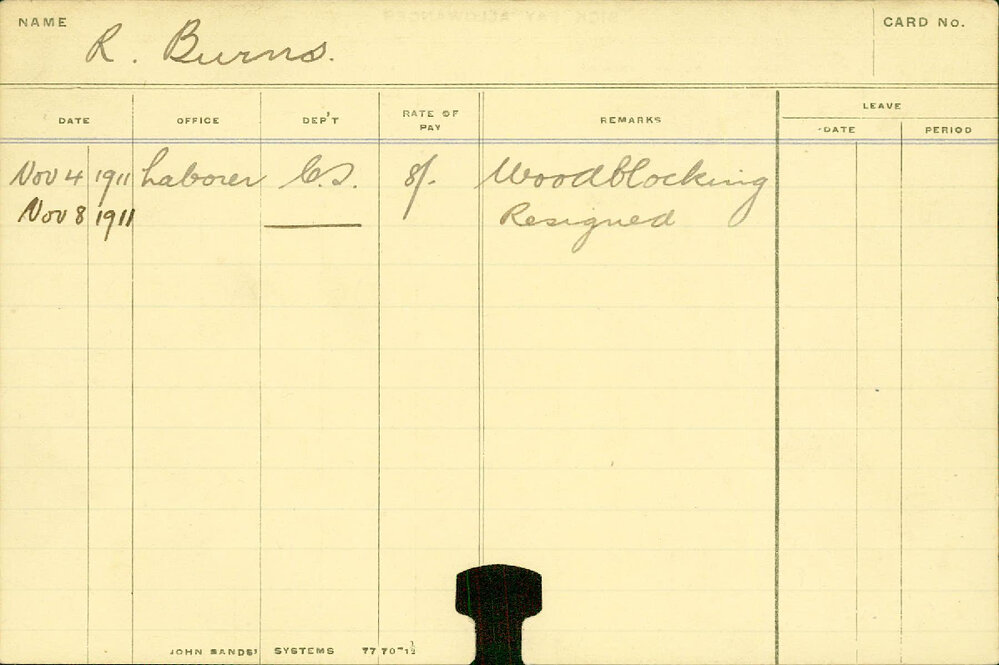 NAME R. Burns. CARD No.
DATE OFFICE DEP'T RATE OF PAY REMARKS LEAVE
DATE PERIOD
Nov 4 1911 Laborer C.S. 8/- Woodblocking
Nov 8 1911 Resigned
JOHN SANDS' SYSTEMS 77 70-1½